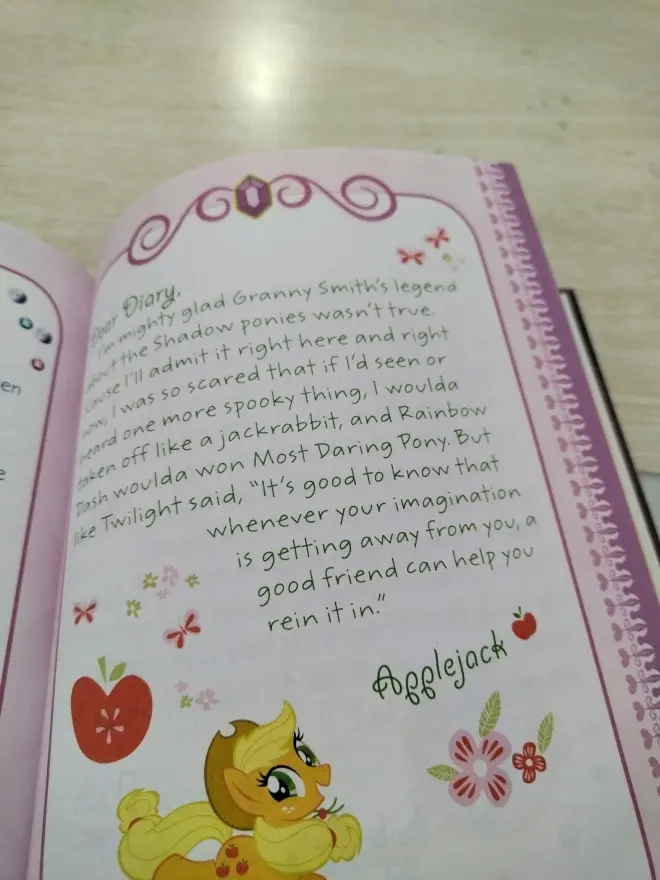 en
e
Dear Diary,
I'm mighty glad Granny Smith's legend
about the Shadow ponies wasn't true.
'Cause I'll admit it right here and right
now, I was so scared that if I'd seen or
heard one more spooky thing, I woulda
taken off like a jackrabbit, and Rainbow
Dash woulda won Most Daring Pony. But
like Twilight said, "It's good to know that
whenever your imagination
is getting away from you, a
good friend can help you
rein it in."
Applejack